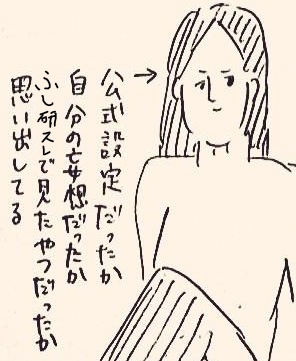 公式設定だったか
自分の妄想だったか
ふし研スレで見たやつだったか
思い出してる